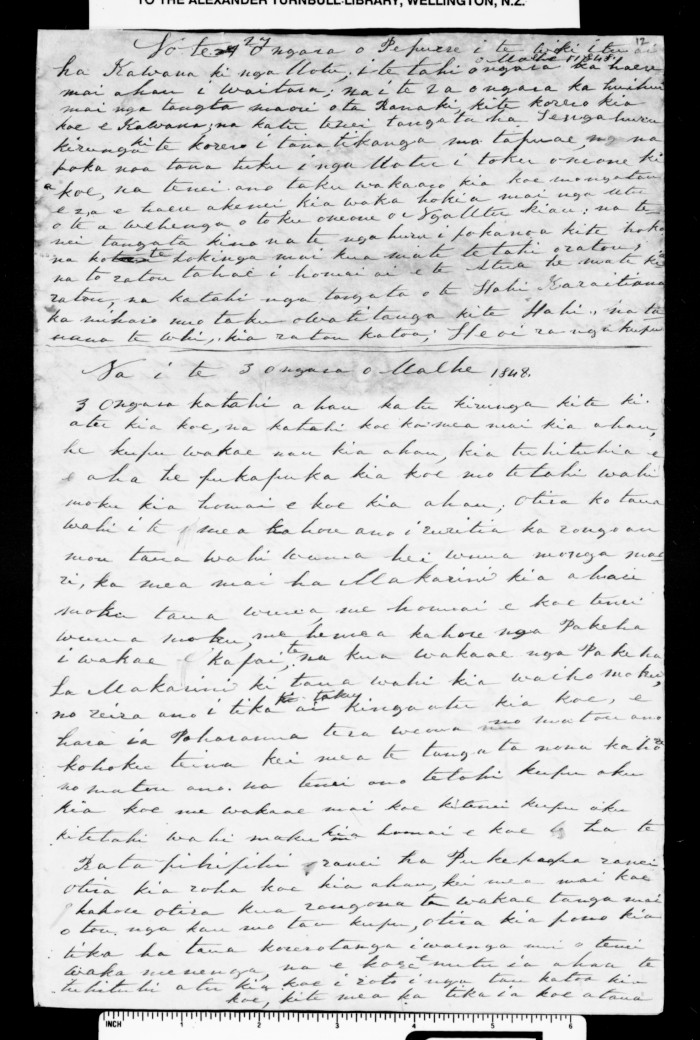 TO THE ALEXANDER TURNBULL LIBRARY, WELLINGTON, N.Z.
12
No te 27 o ngara o Pepuere i te wiki i tu mai
ha Kawana ki nga Motu, i te tahi o ngara o Maehe 1848 ka haere
mai ahau i Waitara; na i te 2 a o ngara ka huihui
mai nga tangata maori o ta ranaki, kite korero kia
koe e Kawana; na katu tenei tangata ha Te ngahuru
kirunga ki te korero i tana tikanga mo tapuae, na
poka noa tana tuku i nga Motu i toku oneone ki
a koe, na tenei ano taku wakaaro kia koe mongatau
e 2 a e haere ake nei kia waka hokia mai nga utu
o te a wehenga o toku oneone o Nga Motu kiau: na te
nei tangata kino na te ngahuru i pokanoa kite hoko
na ko te hokinga mai kua mate te tahi o ratou,
na to ratou tahae i homai ai e te Atua he mate ki a
ratou, na katahi nga tangata o te Hahi Karaitiana
ka miharo mo taku whatitanga kite Hahi, na ta
nana te whi, kia ratou katoa; Heoi ra nga kupu
Na i te 3 o ngara o Maehe 1848.
3 o ngara katahi ahau ka tu kirunga kite ki
atu kia koe, na katahi koe ka mea mai kia ahau,
he kupu wakae nau kia ahau, kia tuhituhia e
e aha he pukapuka kia koe mo tetahi wahi
moku kia homai e koe kia ahau, Otira ko tana
wahi i te mea kahore ano i ruritia ka rongo au
mou tana wahi wenua hei wenua monga mao
ri, ka mea mai ha Makarini kia ahau
moku tana wenua, me homai e koe tenei
wenua moku, me he mea kahore nga Pakeha
i wakae e kapai te, na kua wakaae nga Pakeha
ha Makarini ki tana wahi kia waiho moku,
no reira ano i tika ai ki taku kinga atu kia koe, e
hara ia Paharanma tera wenua no matou ano
kohoke teina kei mea te tangata nona kahore
no matou ano. na tenei ano tetahi kupu aku
kia koe me wakaae mai koe ki tenei kupu aku
ki tetahi wahi maku kia homai e koe ha te
Rata pihipihi ranei ha Puke ranei
otira kia roha koe kia ahau, kei mea mai koe
kahore otira kua rangona te wakae tanga mai
o tou nga kau mo tau kupu, otira kia pono kia
tika ha tana korerotanga i waenga nui o tenei
waka menenga, na e kore e mutu ia ahau te
tuhituhi atu kia koe i roto i nga tau katoa kia
koe, kite mea ka tika ia koe atana
INCH 1 2 3 4 5 6